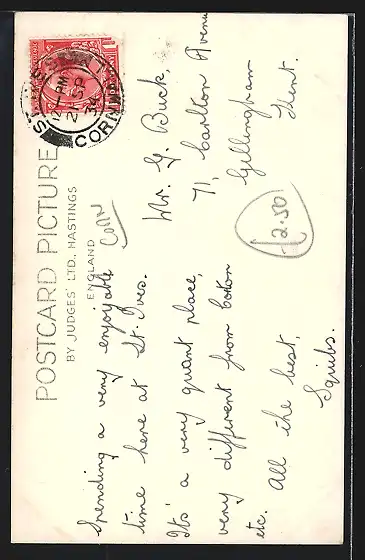 POSTCARD PICTURE
BY JUDGES' LTD., HASTINGS
ENGLAND
CORN
Spending a very enjoyable
time here at St. Ives.
It's a very quant place,
very different from
etc. All the best,
Squibs.
ST. IVES
12-PM
2 SP
34
CORNWALL
Mr. G. Buck,
71, Carlton Avenue
Gillingham
Kent.
£2.50